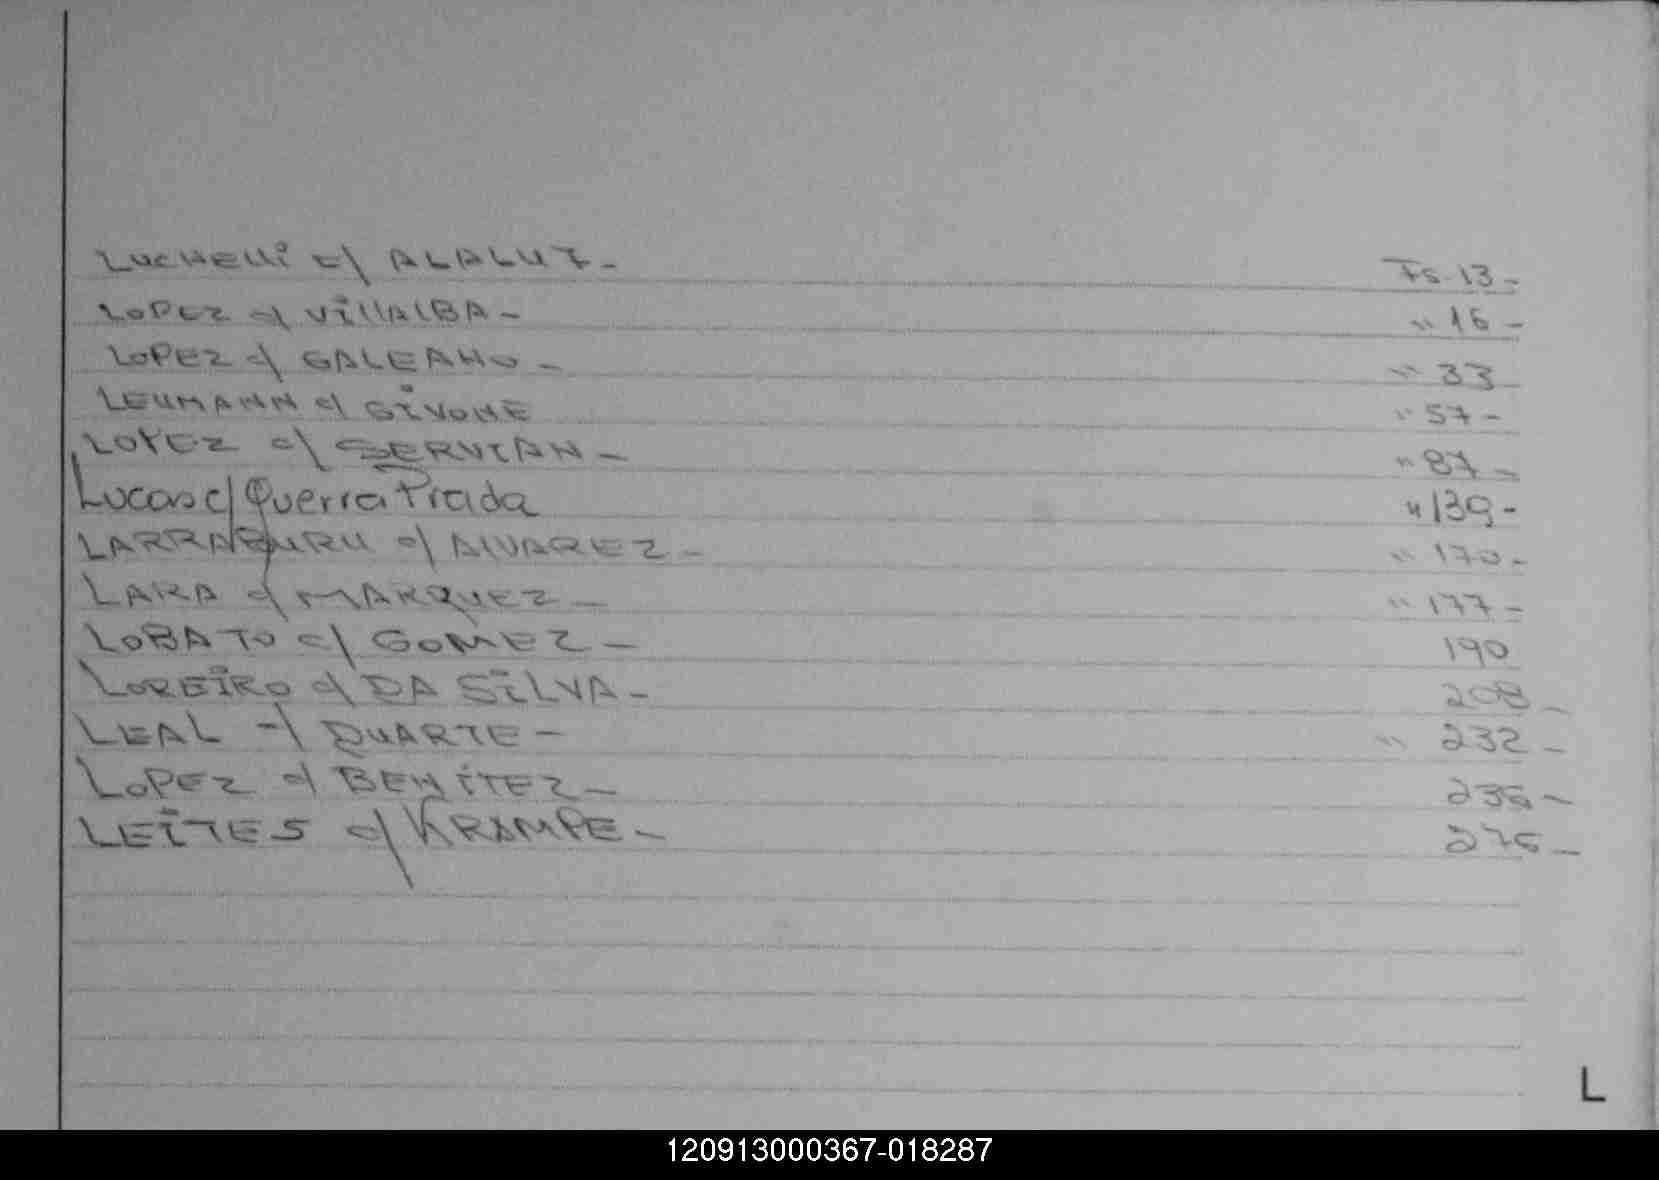 LUCHElli c/ ALALUF- Fs-13-
LOPEZ c/ VillALBA- " 16-
LOPEZ c/ GALEANO- " 33
LEUMANN c/ GiVONE " 57-
LOPEZ c/ SERViAN- " 87-
Lucas c/ Guerra Prada " 139-
LARRABURU c/ AlVAREZ- " 170-
LARA c/ MARQUEZ- " 177-
LOBATO c/ GOMEZ- 190
LOREiRO c/ DA SiLVA- 208-
LEAL c/ DUARTE- " 232-
LOPEZ c/ BENiTEZ- 235-
LEiTES c/ KRAMPE- 276-
L
120913000367-018287